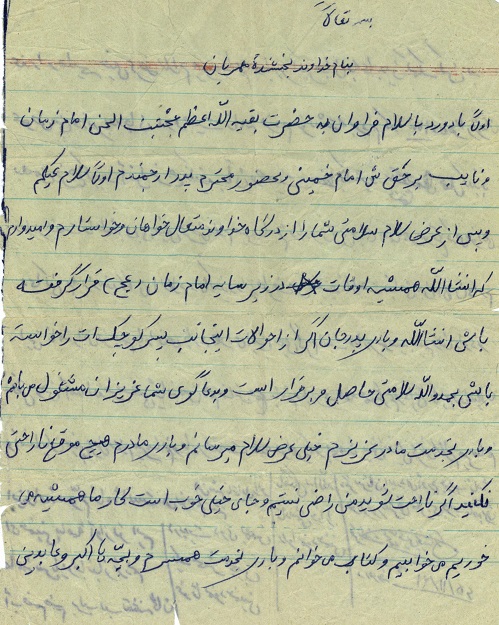 بسمه تعالی
بنام خداوند بخشندهٔ مهربان
اولاً با درود با سلام فراوان به حضرت بقیه الله اعظم حجت ابن الحسن امام زمان
و نایب بر حقش امام خمینی و بحضور محترم پدر ارجمندم اولاً سلام علیکم
و پس از عرض سلام سلامتی شما را از درگاه خداوند متعال خواهان و خواستارم و امیدوارم
که انشاالله همیشه اوقات در زیر سایه امام زمان (عج) قرار گرفته
باشی انشاالله و باری پدر جان اگر از احوالات اینجانب پسر کوچک ات را خواسته
باشی بحمدوالله سلامتی حاصل و برقرار است و بدعا گوی شما عزیزان مشغول می باشم
و باری بخدمت مادر عزیزم خیلی عرض سلام میرسانم و باری مادرم هیچ موقع ناراحتی
نکنید اگر ناراحت شوید من راضی نیستم و جای خیلی خوب است کار ما همیشه می
خوریم می خوابیم و کتاب می خوانم و باری بخدمت همسرم و بچه ها اکبر و عابدین